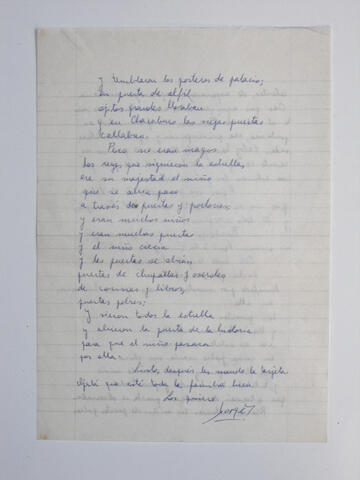 y temblaron los porteros de palacio;
puerta de alfil
ojitos grandes lloraban
y en                     las viejas puertas
callaban
Pero no eran magos
los reyes que siguieron la estrella,
era su majestad el niño
que se abría paso
a través de puertas y
y eran muchos niños
y eran muchas puertas
y el niño crecía
y las puertas se abrían
puertas de chupallas y
de cocinas y libros,
puertas pobres;
y vieron todos la estrella
y abrieron la puerta de la historia
para que el niño pasara
por ella.-
después les mando la tarjeta
Ojalá que esté toda la familia bien
Los quiero